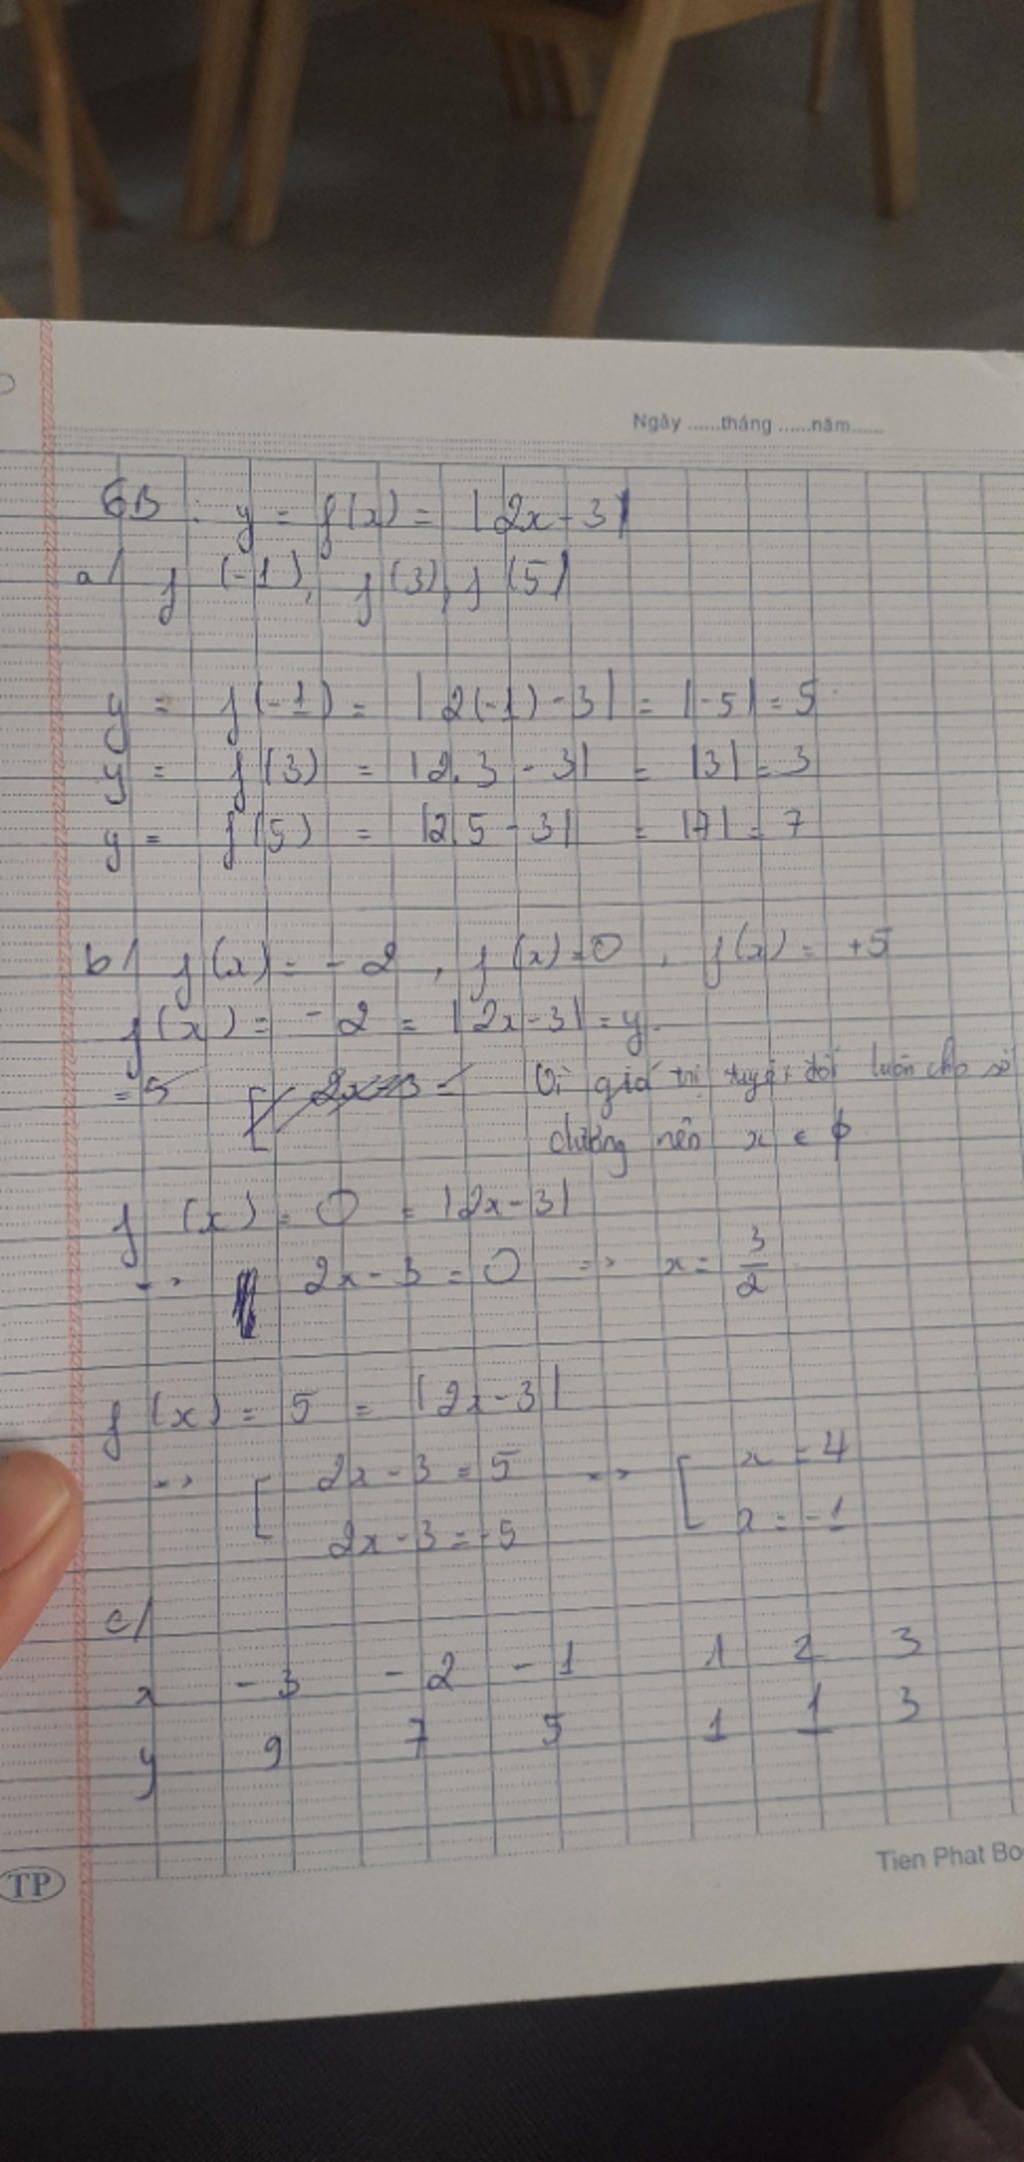 Ngày ......tháng ......năm......
6B : y = f(x) = |2x - 3|
a/ f(-1), f(3), f(5)
y = f(-1) = |2(-1) - 3| = |-5| = 5
y = f(3) = |2.3 - 3| = |3| = 3
y = f(5) = |2.5 - 3| = |7| = 7
b/ f(x) = - 2 , f(x) = 0 , f(x) = +5
f(x) = - 2 = |2x - 3| = y.
= 5 [ 2x - 3 = Vì giá trị tuyệt đối luôn cho số
dương nên x ∈ ϕ
f(x) = 0 = |2x - 3|
=> 2x - 3 = 0 => x = 3/2
f(x) = 5 = |2x - 3|
=> [ 2x - 3 = 5 => [ x = 4
2x - 3 = -5 x = -1
c/
x -3 -2 -1 1 2 3
y 9 7 5 1 1 3
TP
Tien Phat Bo